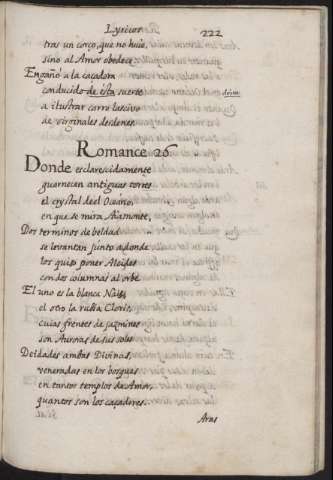 Lyricos 222
tras un corço, que no huio,
sino al Amor obedece.
Engañó a la caçadora
conducido de esta suerte
a ilustrar carro lascivo
de virginales desdenes.
Romance 26
Donde esclarecidamense
guarnecen antiguas torres
el crystal de el Oceano,
en que se mira Aiamonte,
Dos terminos de beldad
se levantan junto a donde
los quiso poner Alcides
con dos columnas al orbe.
El uno es la blanca Nais,
el otro la rubia Cloris,
cuias frentes de jazmines
son Auroras de sus soles
Deidades ambas Divinas,
veneradas en los bosques
en tantos templos de Amor,
quantos son los caçadores.
Aras